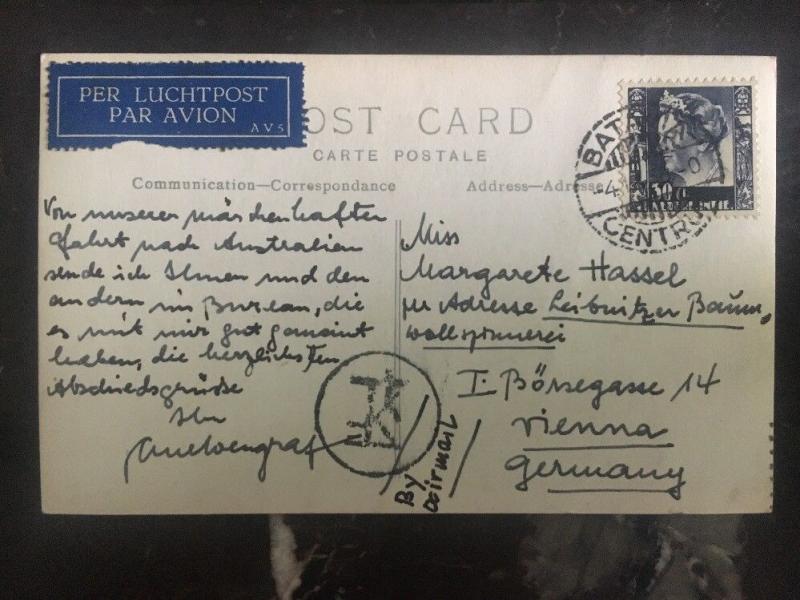 PER LUCHTPOST
PAR AVION
AV5
POST CARD
CARTE POSTALE
Communication—Correspondance
Address—Adresse
BAT
CENTRU
-4
30
Von unserer märchenhaften
Fahrt nach Australien
sende ich Ihnen und den
andern im Bureau, die
es mit mir gut gemeint
haben, die herzlichsten
Abschiedsgrüsse
Ihr
Miss
Margarete Hassel
per Adresse Leibnitzer Baum,
wollspinnerei
I. Börsegasse 14
Vienna
Germany
By
Airmail